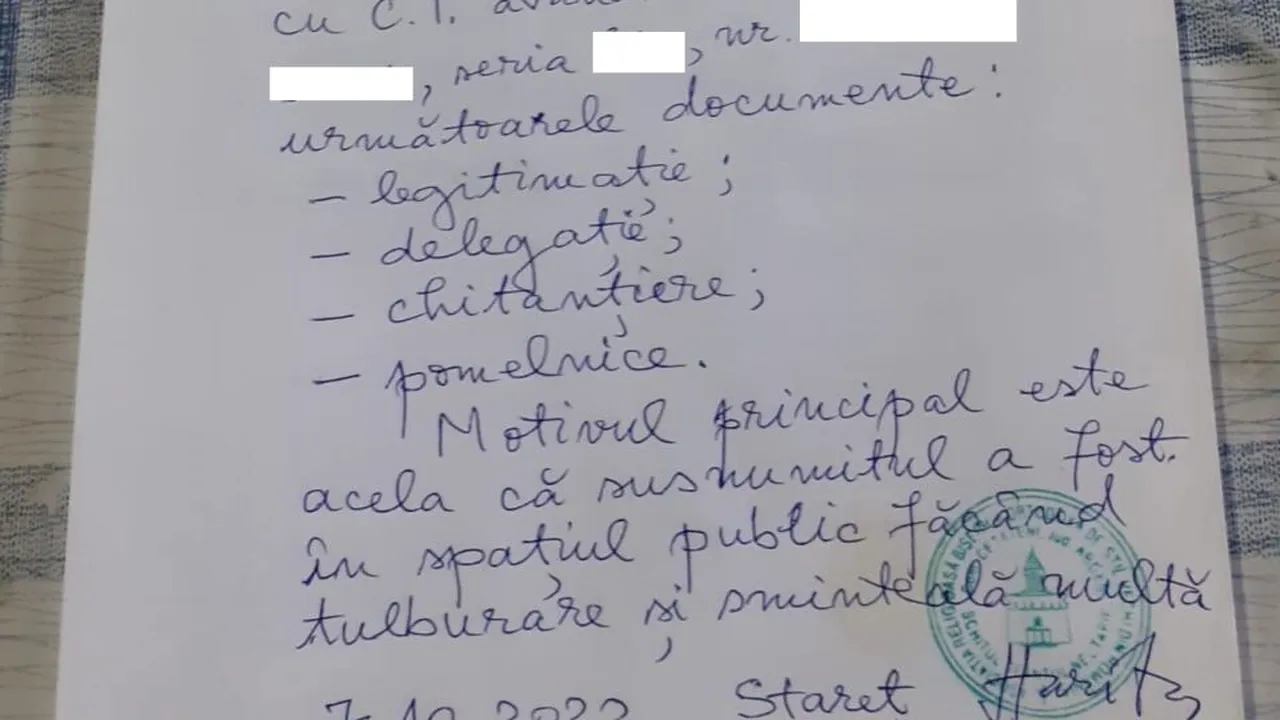 cu C.I.
, seria , nr.
, următoarele documente:
– legitimație;
– delegație;
– chitanțiere;
– pomelnice.
Motivul principal este
acela că susnumitul a fost
în spațiul public făcând
tulburare și sminteală multă
7.10.2022 Staret